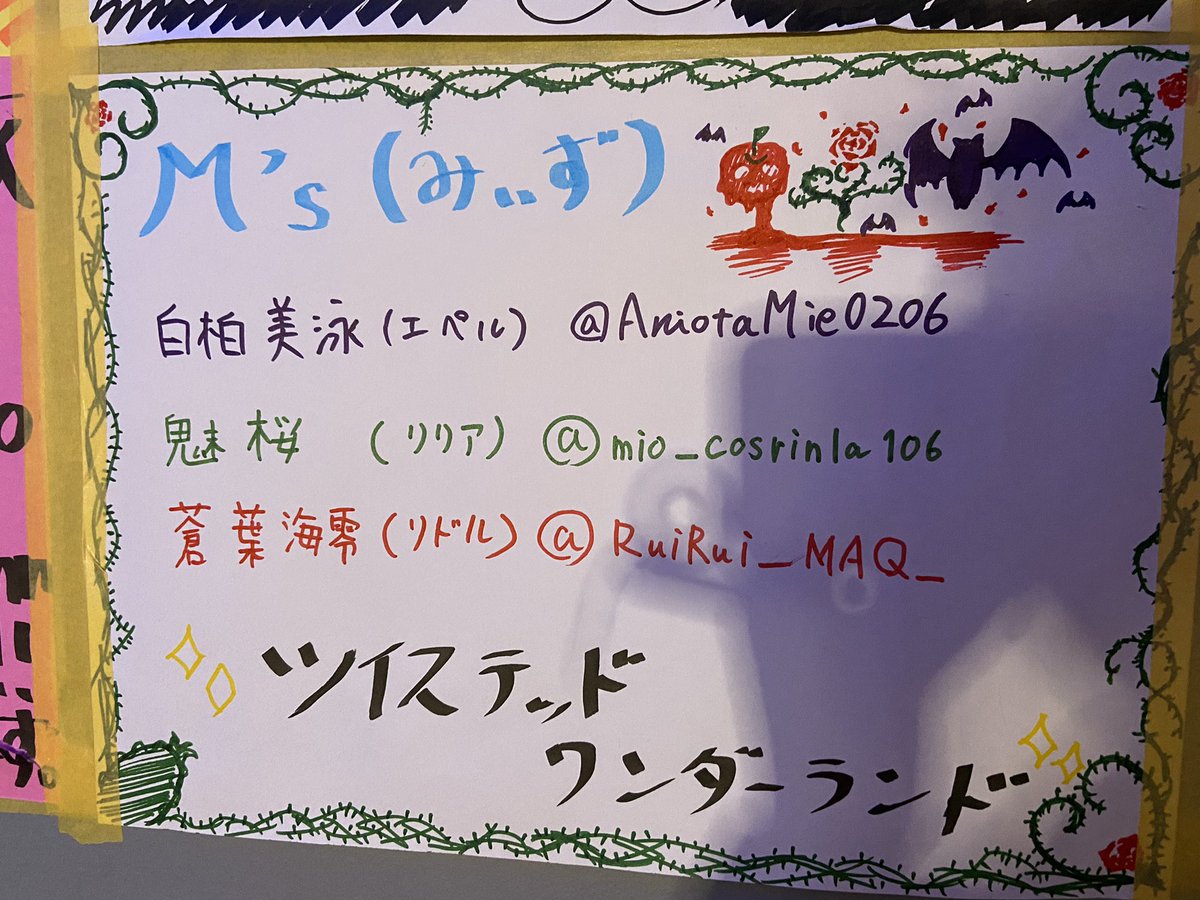 M's (みぃず)
白柏美泳(エペル) @AniotaMie0206
魅桜 (リリア) @mio_cosrinla106
蒼葉海零(リドル) @RuiRui_MAQ_
ツイステッド
ワンダーランド
す。